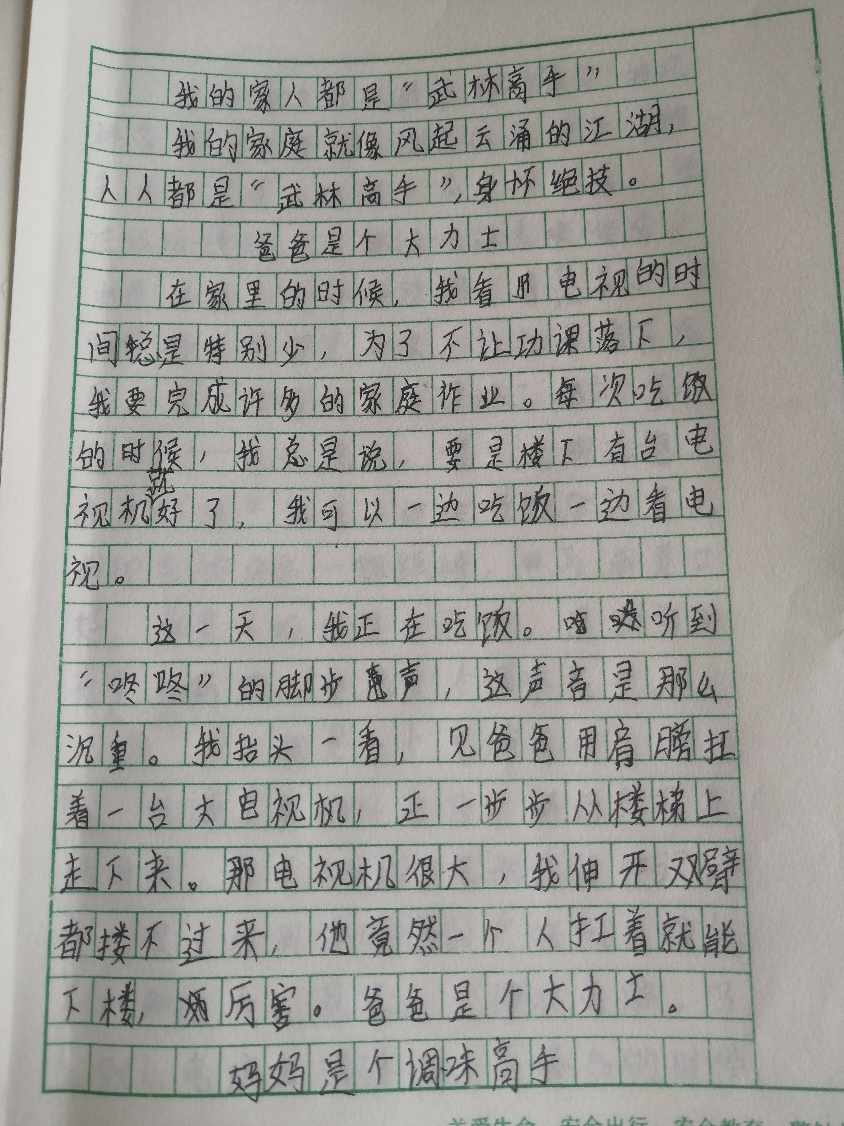 我的家人都是“武林高手”
我的家庭就像风起云涌的江湖，
人人都是“武林高手”，身怀绝技。
爸爸是个大力士
在家里的时候，我看电视的时
间总是特别少，为了不让功课落下，
我要完成许多的家庭作业。每次吃饭
的时候，我总是说，要是楼下有台电
视机就好了，我可以一边吃饭一边看电
视。
这一天，我正在吃饭。听到
“咚咚”的脚步声，这声音是那么
沉重。我抬头一看，见爸爸用肩膀扛
着一台大电视机，正一步步从楼梯上
走下来。那电视机很大，我伸开双臂
都搂不过来，他竟然一个人扛着就能
下楼，厉害。爸爸是个大力士。
妈妈是个调味高手